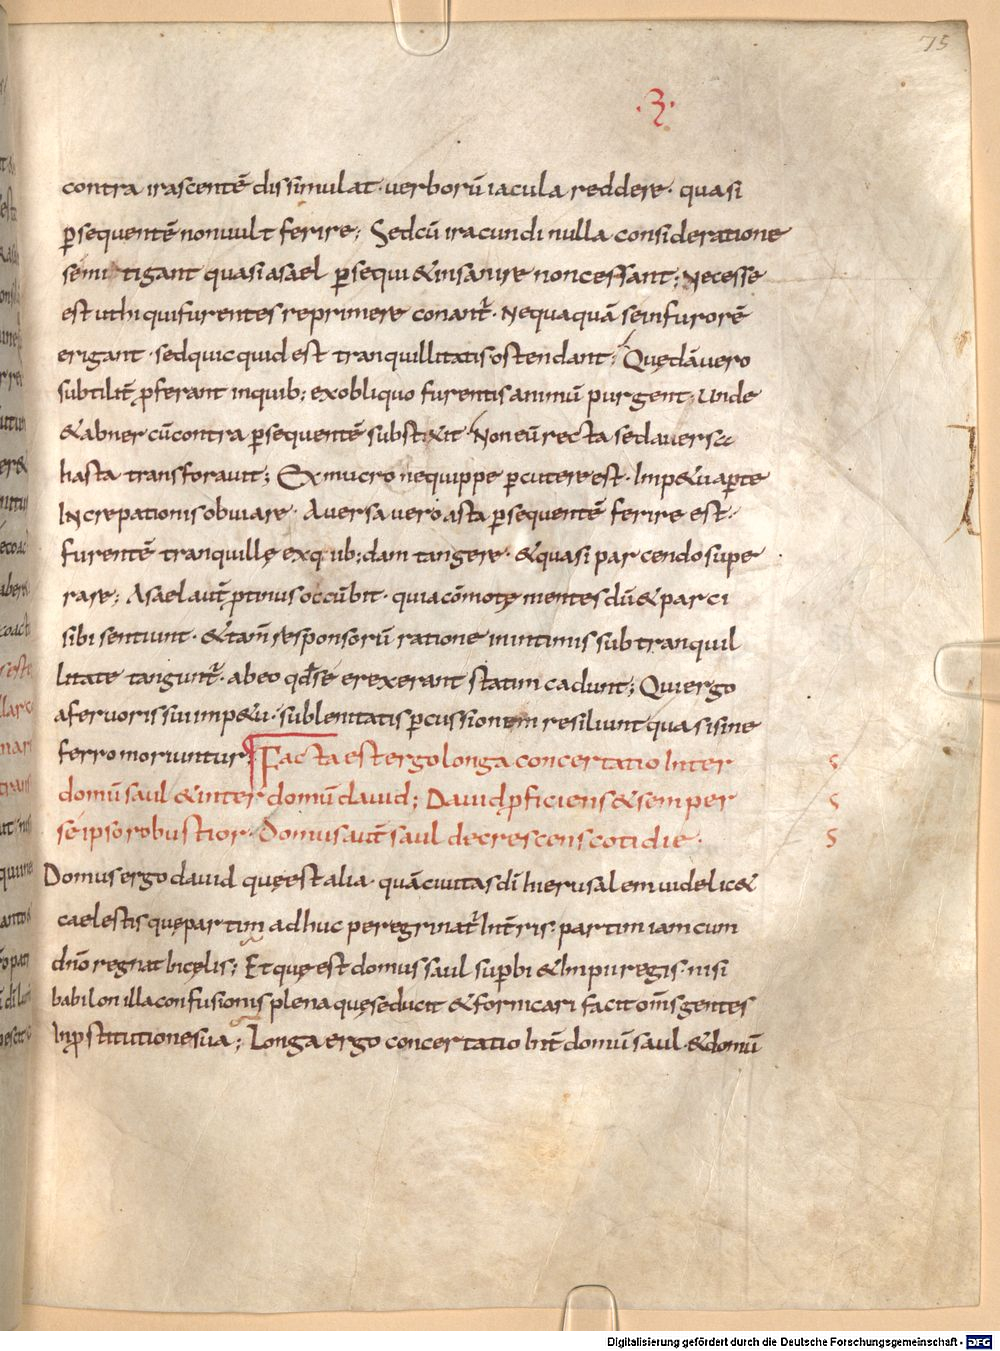 75
·3·
contra irascentē dissimulat · uerborū iacula reddere · quasi
ꝑsequentē non uult ferire; Sed cū iracundi nulla consideratione
se mitigant quasi asael ꝑsequi & insanire non cessant; Necesse
est ut hi qui furentes reprimere conant᷑ · Nequaquā se in furorē
erigant · sed quicquid est tranquillitatis ostendant; Quędā uero
subtilit̄ ꝓferant in quib; ex obliquo furentis animū purgent; Unde
& abner cū contra ꝑsequentē subst&it Non eū recta sed auersa
hasta transforauit; Ex mucrone quippe ꝑcutere est · Imp&u aꝑte
Increpationis obuiare · Auersa uero asta ꝑsequentē ferire est ·
furentē tranquille ex quib;dam tangere · & quasi parcendo supe
rare; Asael aut̄ ꝓtinus occūbit · quia cōmotę mentes dū & parci
sibi sentiunt · & tam̄ responsorū ratione in intimis sub tranquil
litate tangunt᷑ · ab eo qđ se erexerant statim cadunt; Qui ergo
a feruoris sui imp&u · sub lenitatis ꝑcussionem resiliunt quasi sine
ferro moriuntur Facta est ergo longa concertatio Inter
domū saul & inter domū dauid; Dauid ꝓficiens & semper
se ipso robustior · Domus aut̄ saul decrescens cotidie ·
s
s
s
Domus ergo dauid quę est alia · quā ciuitas dī hierusalem uidelic&
caelestis quę partim adhuc peregrinat᷑ In t̄ris · partim iam cum
dn̄o regnat In cęlis; Et quę est domus saul suꝑbi & Impii regis · nisi
babilon illa confusionis plena quę seducit & fornicari facit om̄s gentes
In ꝓstitutione sua; Longa ergo concertatio Int̄ domū saul · & domū
Digitalisierung gefördert durch die Deutsche Forschungsgemeinschaft - DFG